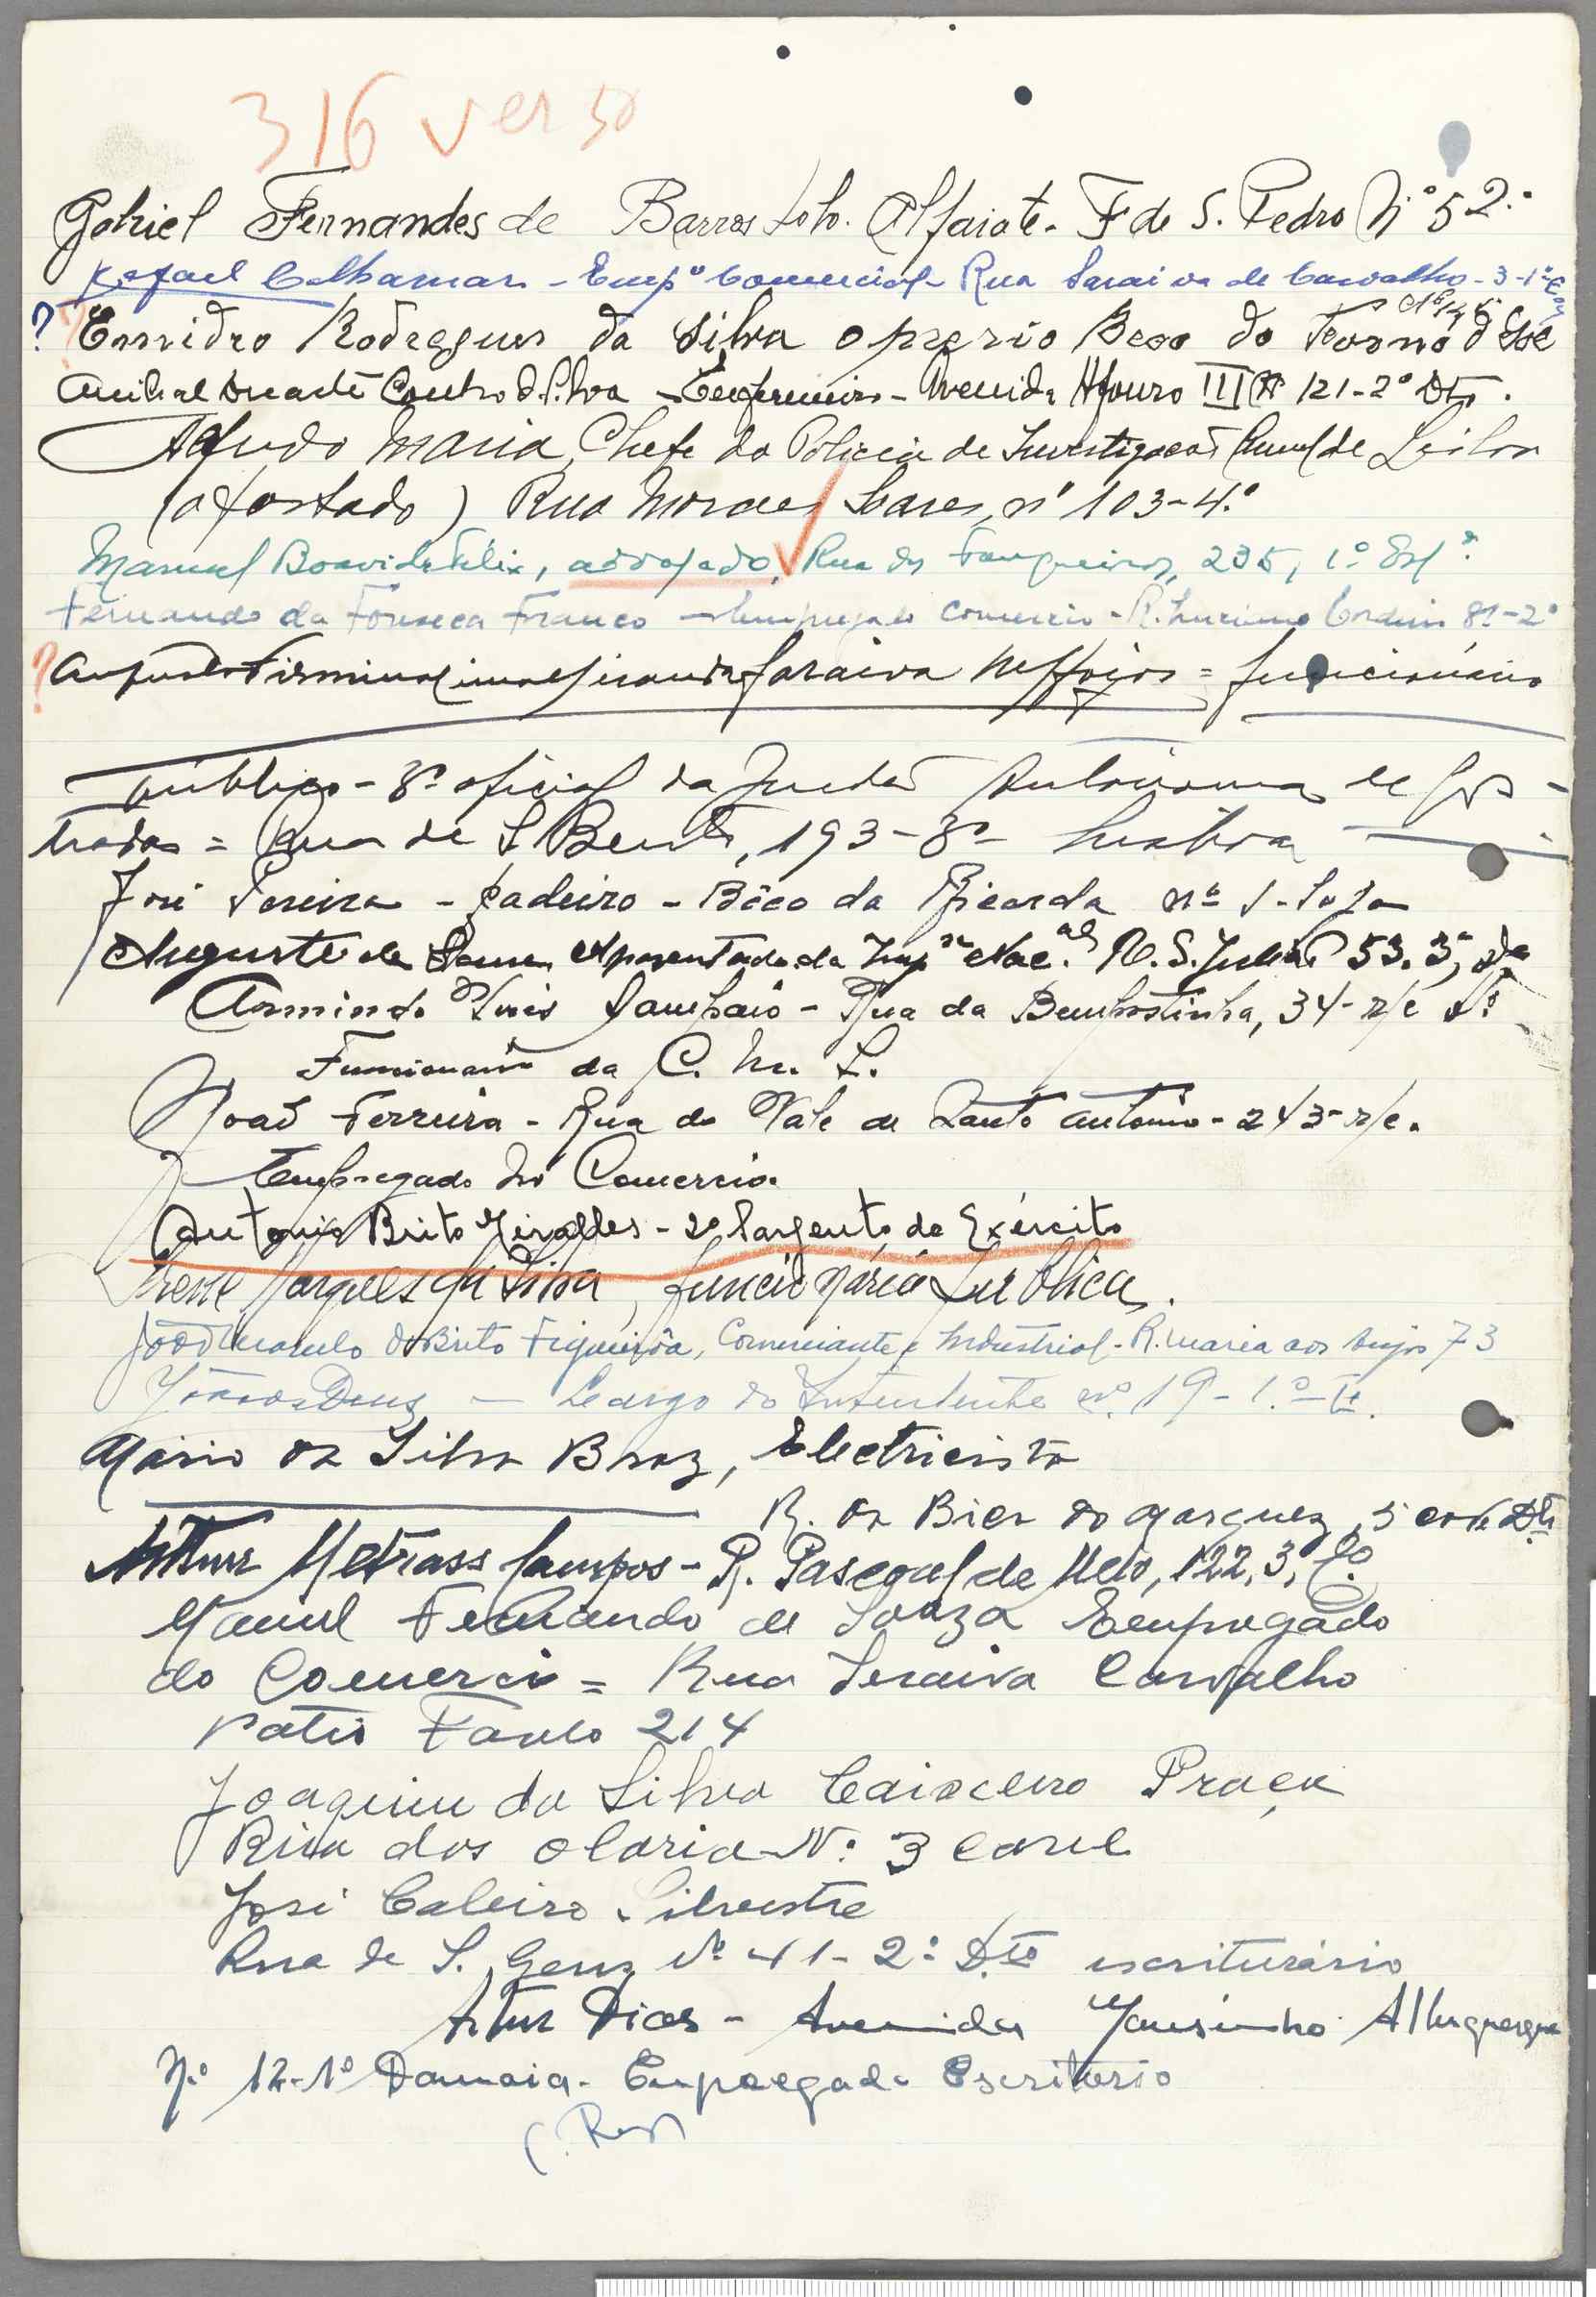 316 verso
Gabriel Fernandes de Barros Alfaiate - de S. Pedro Nº 5 2º
Rafael - Empº Comercial - Rua Saraiva de Carvalho - 3 - 1º
? ? Emidio Rodregues da Silva oprerio Beco do
Anibal Duarte Coutro d. Silva - Enfermeiro - Avenida Afonso III 121 - 2º Dto.
Alfredo Maria, Chefe da Policia de Investigação de Lisboa
(afastado) Rua Moraes Soares, nº 103 - 4º
Manuel Boavida Felix, advogado, Rua dos Fanqueiros, 235, 1º Esqº
Fernando da Fonseca Franco - Empregado comercio - R. Luciano Cordeiro 81 - 2º
? Saraiva = funcionário
público - 3º oficial da Junta Autónoma de Es-
tradas = Rua de S. Bento, 193 - 3º Lisboa
José Pereira - padeiro - Bêco da Bicarda nº 1 - Loja
Augusto de Aposentado da Impª Nacal. R. S. Julião 53. 3º,
Armindo Luis Sampaio - Rua da Bempostinha, 34 - r/c
Funcionario da C. M. L.
João Ferreira - Rua do Vale de Santo Antonio - 243 - r/c.
Empregado no Comercio
Antonio Brito Giraldes - 2º Sargento do Exército
Irene Marques da Silva, funcionária pública.
João de Brito Figueirôa, Comerciante e Industrial - R. Maria dos Anjos 73
João de Deus - Largo do Intendente nº 19 - 1º
Mário da Silva Braz, Electricista
R. da Bica do Marquez, 5 Dto
Arthur Metrass Campos - R. Pascoal de Melo, 122, 3º,
Manuel Fernando de Souza Empregado
do Comerci = Rua Seraiva Carvalho
Patio 214
Joaquim da Silva Caixceiro Praça
Rua das Olaria Nº 3 cave
José Caleiro Silvestre
Rua de S. Nº 41 - 2º D.to escriturário
Artur Dias - Avenida Mousinho Albuquerque
Nº 12 - 1º Damaia - Empregado Escritorio